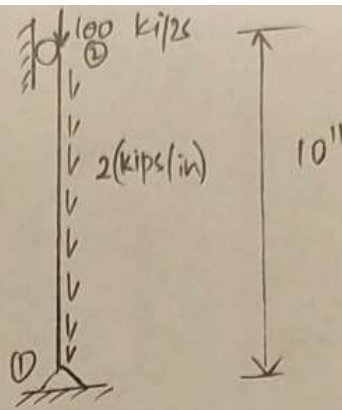 100 kips
②
2(kips/in)
10"
①